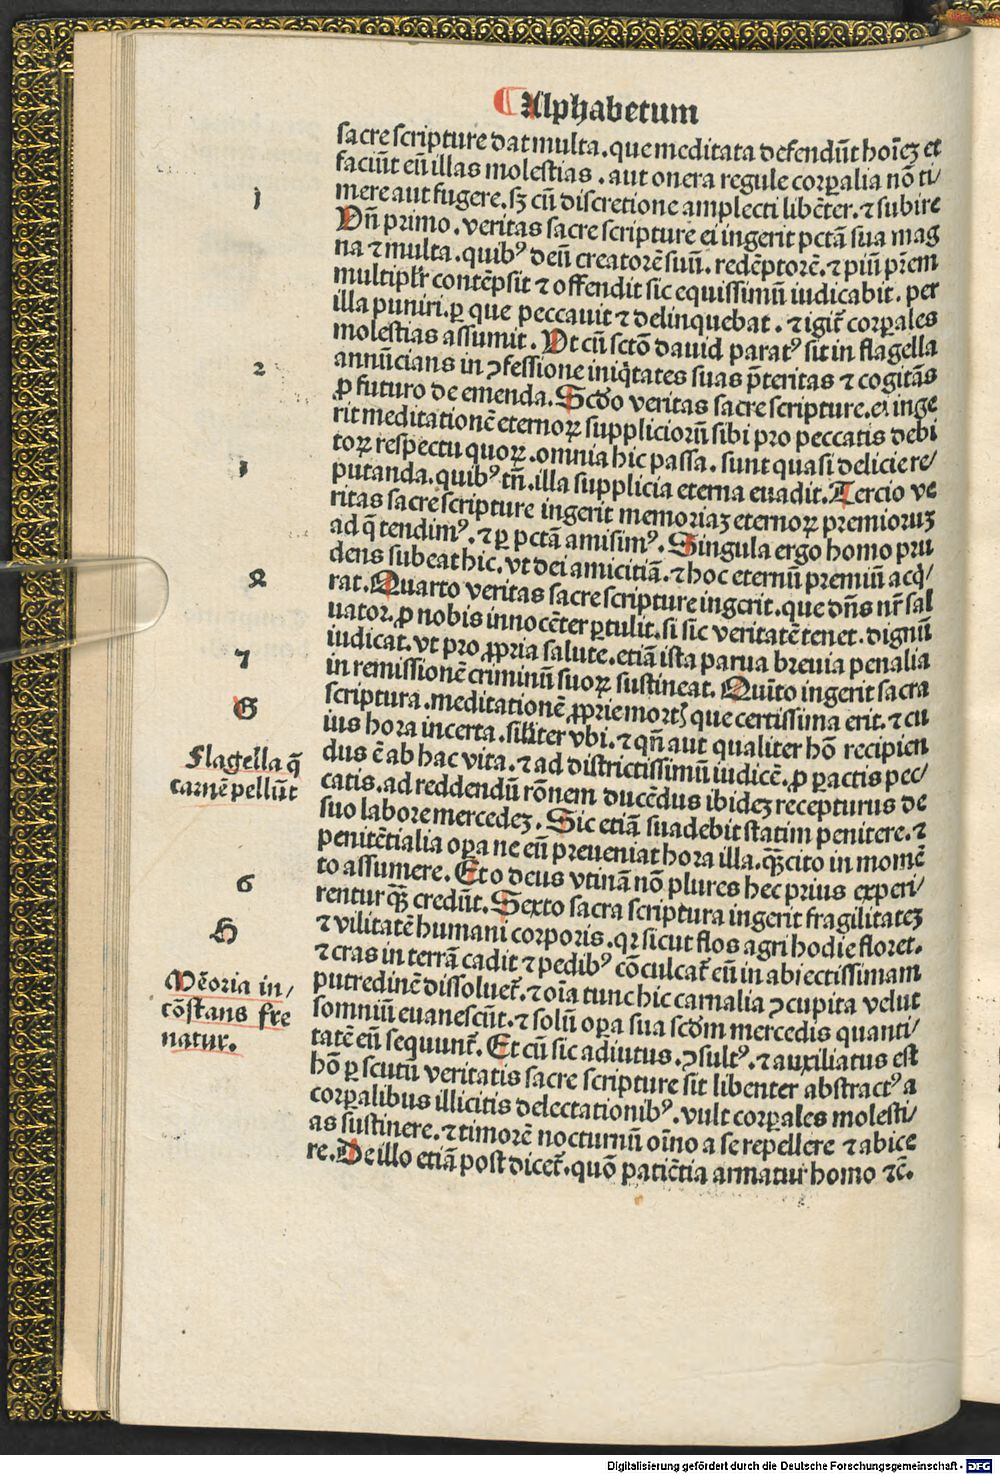 Alphabetum
sacre scripture dat multa. que meditata defendūt hoīeꝫ et
faciūt eū illas molestias. aut onera regule corꝑalia nō ti/
mere aut fugere. sꝫ cū discretione amplecti libēter. ⁊ subire
1
Vñ primo. veritas sacre scripture ei ingerit pctā sua mag
na ⁊ multa. quibꝰ deū creatorē suū. redēptorē. ⁊ piū pr̄em
multiplr̄ contēpsit ⁊ offendit sic equissimū iudicabit. per
illa puniri. ꝑ que peccauit ⁊ delinquebat. ⁊ igit̄ corꝑales
molestias assumit. Vt cū sctō dauid paratꝰ sit in flagella
2
annūcians in ↄfessione iniq̄tates suas p̄teritas ⁊ cogitās
ꝓ futuro de emenda. Scdo veritas sacre scripture. ei inge
rit meditationē eternoꝝ suppliciorū sibi pro peccatis debi
toꝝ respectu quoꝝ. omnia hic passa. sunt quasi delicie re/
3
putanda. quibꝰ tn̄. illa supplicia eterna euadit. Tercio ve
ritas sacre scripture ingerit memoriaꝫ eternoꝝ premioruꝫ
ad q̄ tendimꝰ. ⁊ ꝑ pctā amisimꝰ. Singula ergo homo pru
dens subeat hic. vt dei amicitiā. ⁊ hoc eternū premiū acq̄/
4
rat. Quarto veritas sacre scripture ingerit. que dn̄s nr̄ sal
uator. ꝓ nobis innocēter ꝑtulit. si sic veritatē tenet. dignū
iudicat. vt pro ꝓpria salute. etiā ista parua breuia penalia
7
in remissionē criminū suoꝝ sustineat. Quīto ingerit sacra
G
scriptura. meditationē ꝓprie mortꝭ que certissima erit. ⁊ cu
ius hora incerta. sil̄iter vbi. ⁊ qn̄ aut qualiter hō recipien
Flagella q̄
carnē pellūt
dus ē ab hac vita. ⁊ ad districtissimū iudicē. ꝓ ꝑactis pec/
catis. ad reddendū rōnem ducēdus ibideꝫ recepturus de
suo labore mercedeꝫ. Sic etiā suadebit statim penitere. ⁊
penitētialia oꝑa ne eū preueniat hora illa. qꝫ cito in momē
to assumere. Et o deus vtinā nō plures hec prius experi/
6
rentur qꝫ credūt. Sexto sacra scriptura ingerit fragilitateꝫ
H
⁊ vilitatē humani corporis. qꝛ sicut flos agri hodie floret.
⁊ cras in terrā cadit ⁊ pedibꝰ cōculcat̄ eū in abiectissimam
Mēoria in/
cōstans fre
natur.
putredinē dissoluet̄. ⁊ oīa tunc hic carnalia ↄcupita velut
somniū euanescūt. ⁊ solū oꝑa sua scdm mercedis quanti/
tatē eū sequunt̄. Et cū sic adiutus. ↄsultꝰ. ⁊ auxiliatus est
hō ꝑ scutū veritatis sacre scripture sit libenter abstractꝰ a
corꝑalibus illicitis delectationibꝰ. vult corꝑales molesti/
as sustinere. ⁊ timorē nocturnū oīno a se repellere ⁊ abice
re. De illo etiā post dicet̄. quō patiētia armatur homo ⁊c̄.
Digitalisierung gefördert durch die Deutsche Forschungsgemeinschaft - DFG